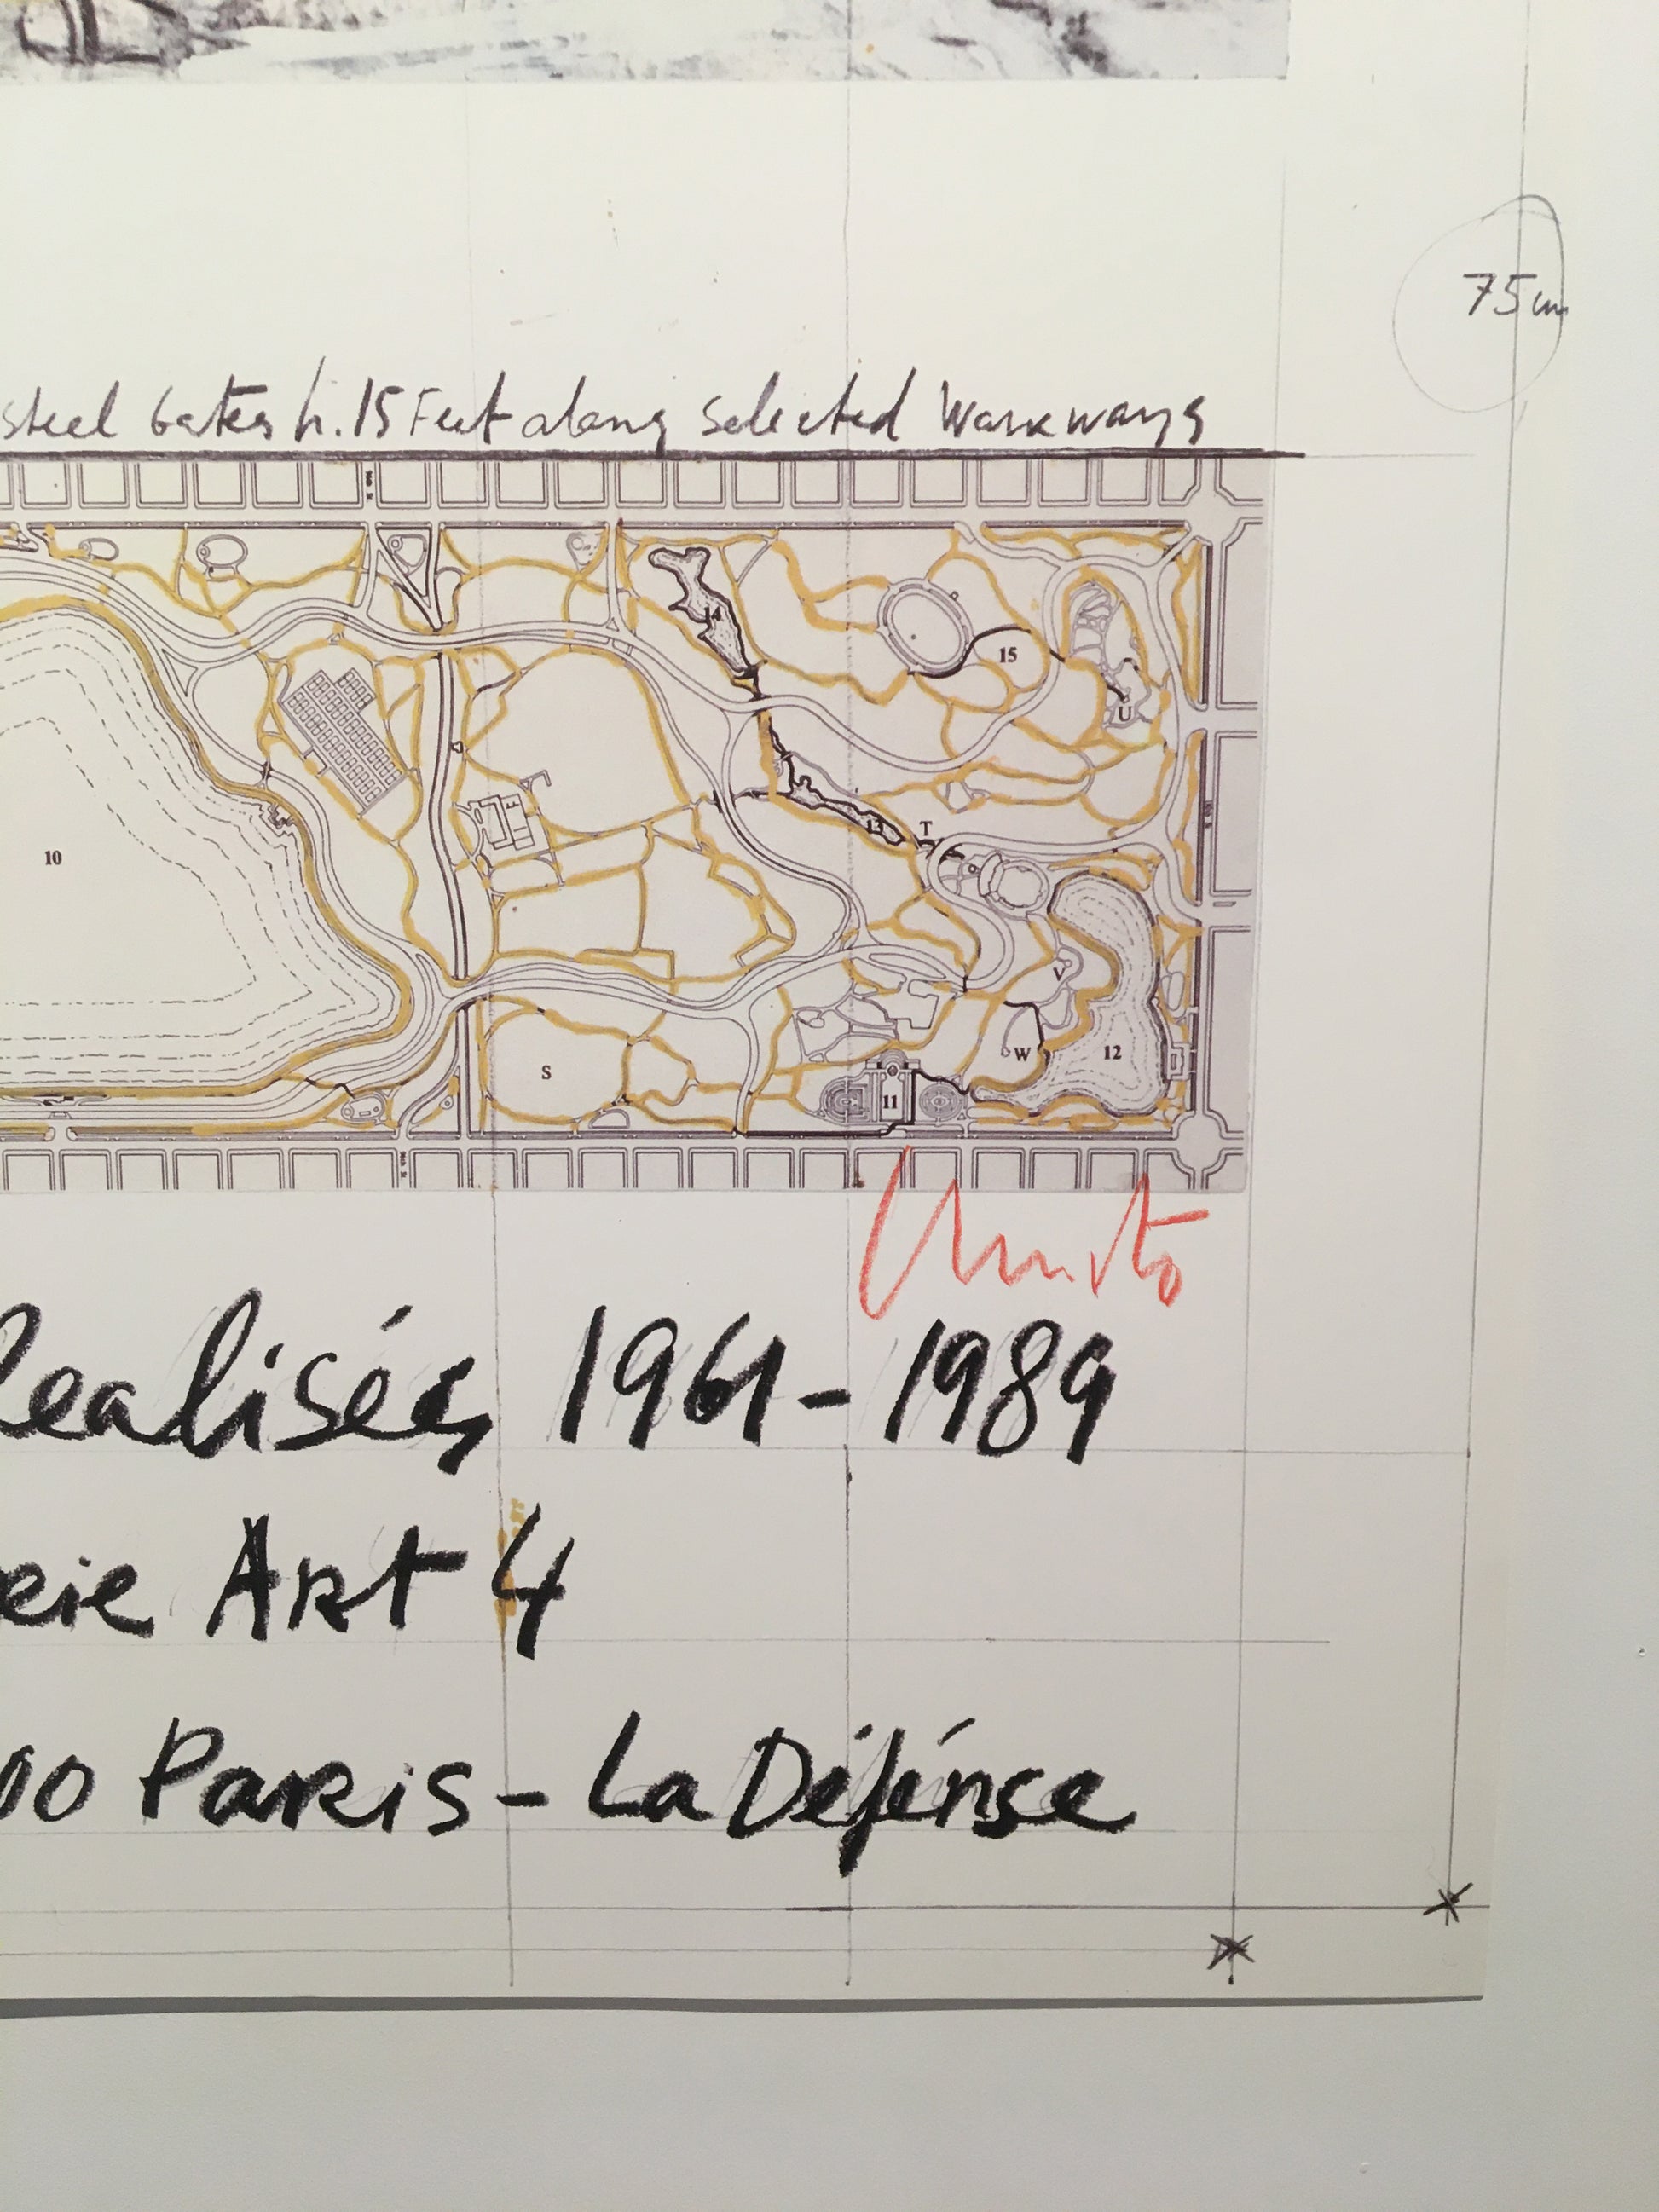 75cm
steel Gates h. 15 Feet along selected Walkways
14
15
U
10
13
T
V
S
W
12
11
Christo
Realisées 1961-1989
erie Art 4
00 Paris - La Défénse